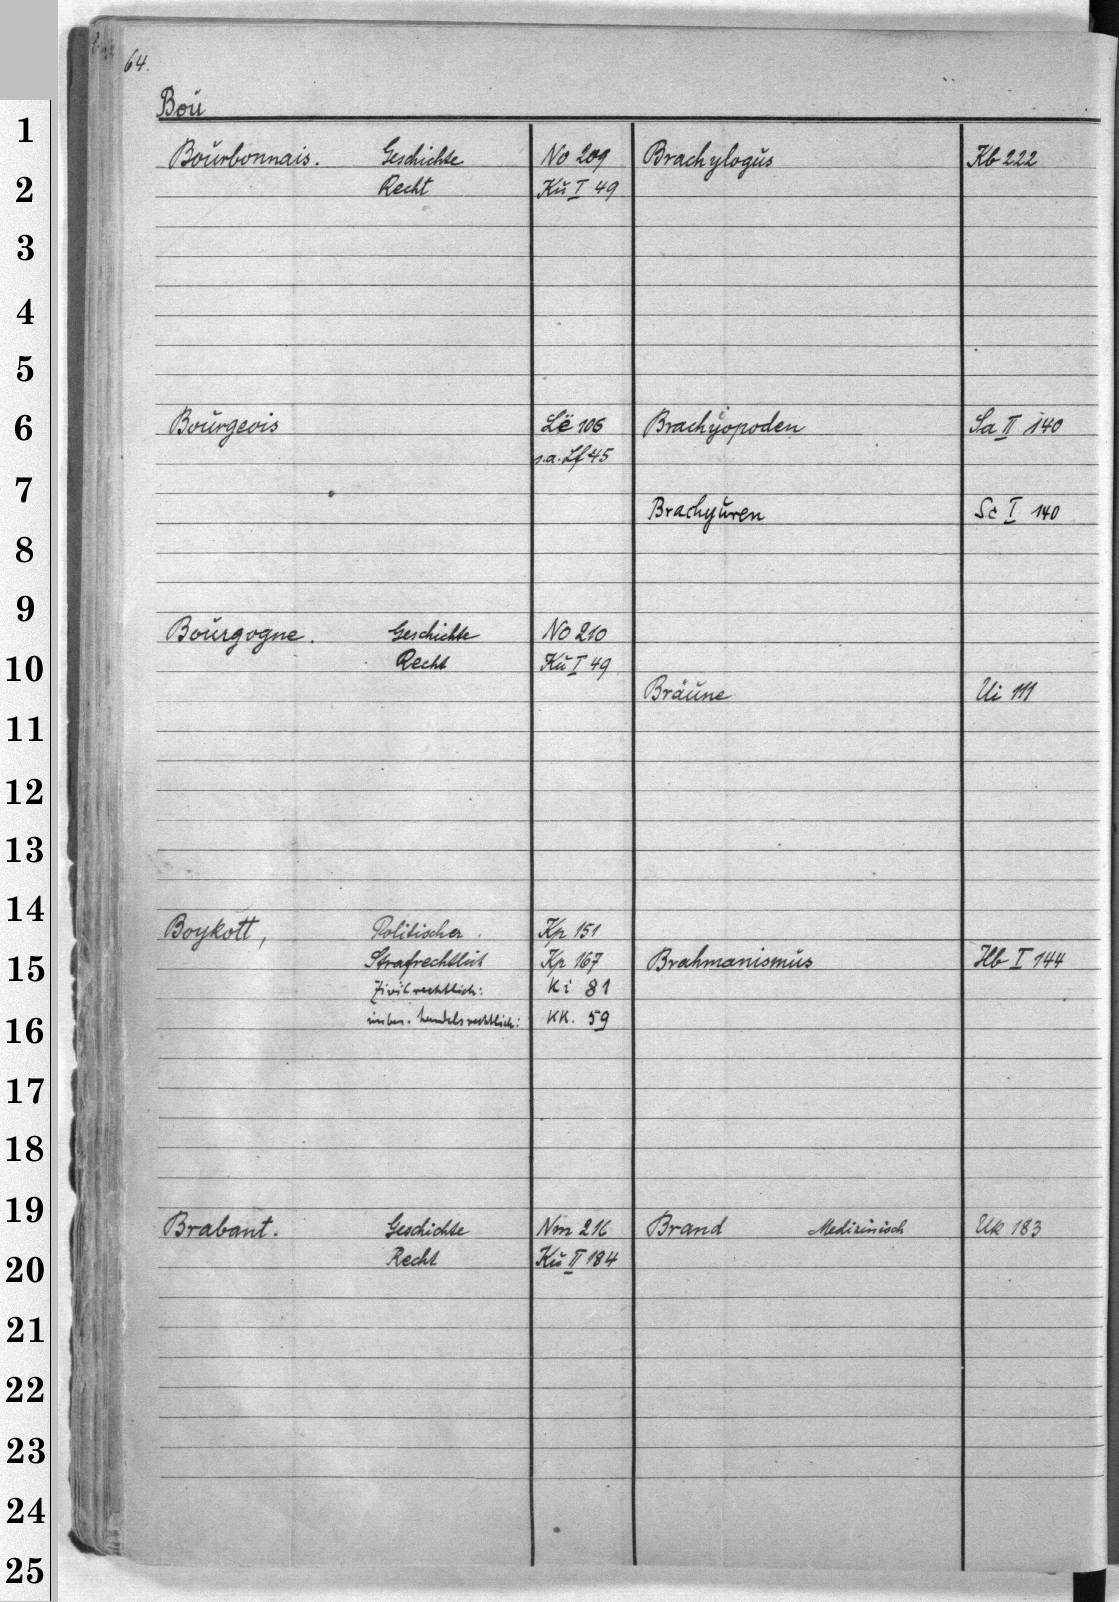 64.
Bou
Bourbonnais. Geschichte No 209
Recht Ku I 49
Bourgeois Lë 106
s.a. Lf 45
Bourgogne. Geschichte No 210
Recht Ku I 49
Boykott, Politischer. Kp 151
Strafrechtlich Kp 167
Zivilrechtlich: Ki 81
insbes. handelsrechtlich: KK. 59
Brabant. Geschichte Nm 216
Recht Ku II 184
Brachylogus Kb 222
Brachyopoden Sa II 140
Brachyuren Sc I 140
Bräune Ui 111
Brahmanismus Hb I 144
Brand Medizinisch Uk 183
1
2
3
4
5
6
7
8
9
10
11
12
13
14
15
16
17
18
19
20
21
22
23
24
25